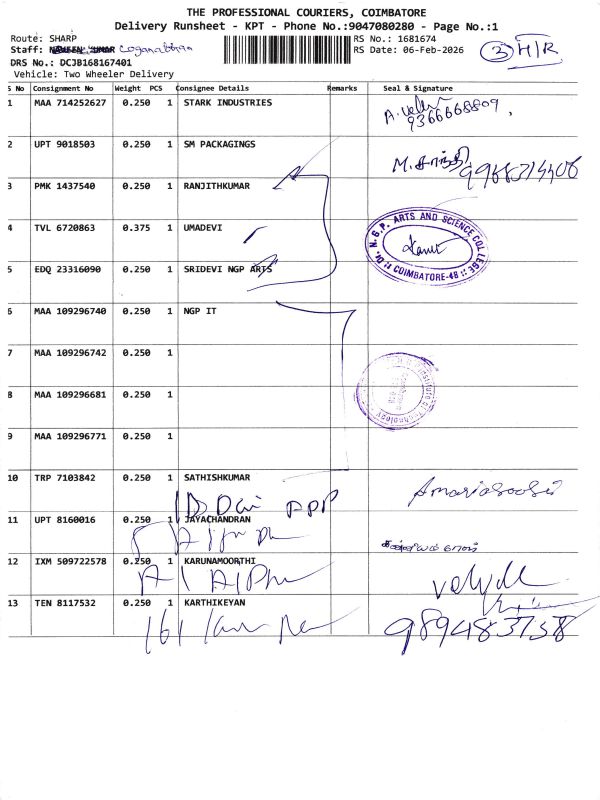 THE PROFESSIONAL COURIERS, COIMBATORE
Delivery Runsheet - KPT - Phone No.:9047080280 - Page No.:1
Route: SHARP RS No.: 1681674
Staff: RS Date: 06-Feb-2026 3 H/R
DRS No.: DCJB168167401
Vehicle: Two Wheeler Delivery
S No Consignment No Weight PCS Consignee Details Remarks Seal & Signature
1 MAA 714252627 0.250 1 STARK INDUSTRIES
9366668809
2 UPT 9018503 0.250 1 SM PACKAGINGS
3 PMK 1437540 0.250 1 RANJITHKUMAR
4 TVL 6720863 0.375 1 UMADEVI
Dr. N.G.P. ARTS AND SCIENCE COLLEGE
COIMBATORE-48
5 EDQ 23316090 0.250 1 SRIDEVI NGP ARTS
6 MAA 109296740 0.250 1 NGP IT
7 MAA 109296742 0.250 1
8 MAA 109296681 0.250 1
9 MAA 109296771 0.250 1
10 TRP 7103842 0.250 1 SATHISHKUMAR
11 UPT 8160016 0.250 1 JAYACHANDRAN
12 IXM 509722578 0.250 1 KARUNAMOORTHI
13 TEN 8117532 0.250 1 KARTHIKEYAN
9894483758